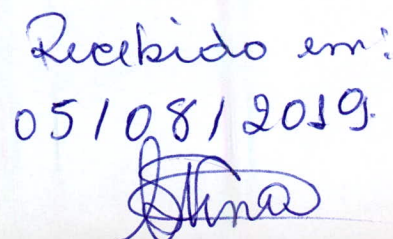 Recebido em:
05/08/2019.